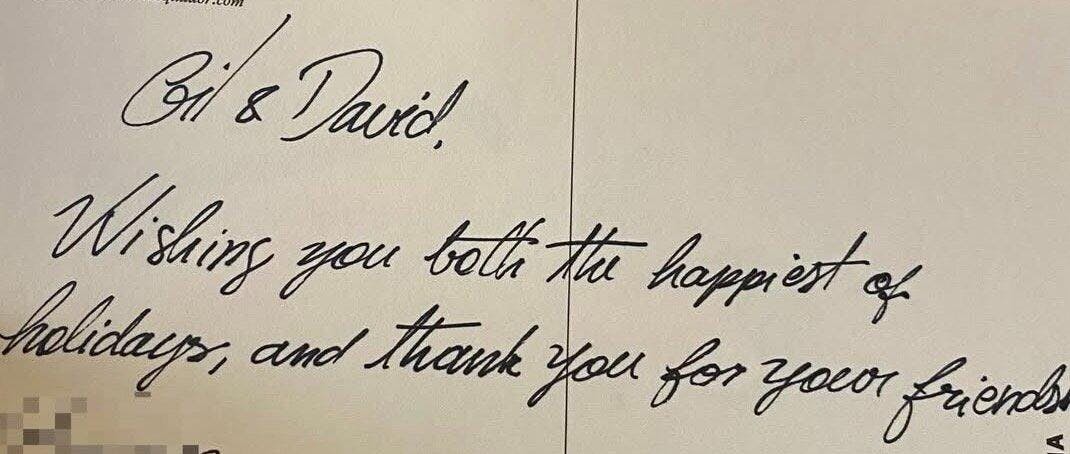 Gil & David,
Wishing you both the happiest of
holidays, and thank you for your friends